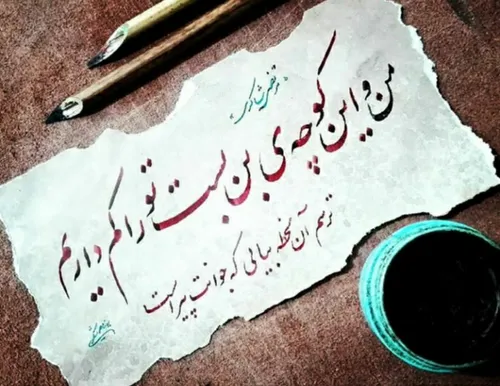 مرتضی شاکری
من و این کوچه ی بن بست تو را کم داریم
ترسم آن لحظه بیایی که جوانت پیر است